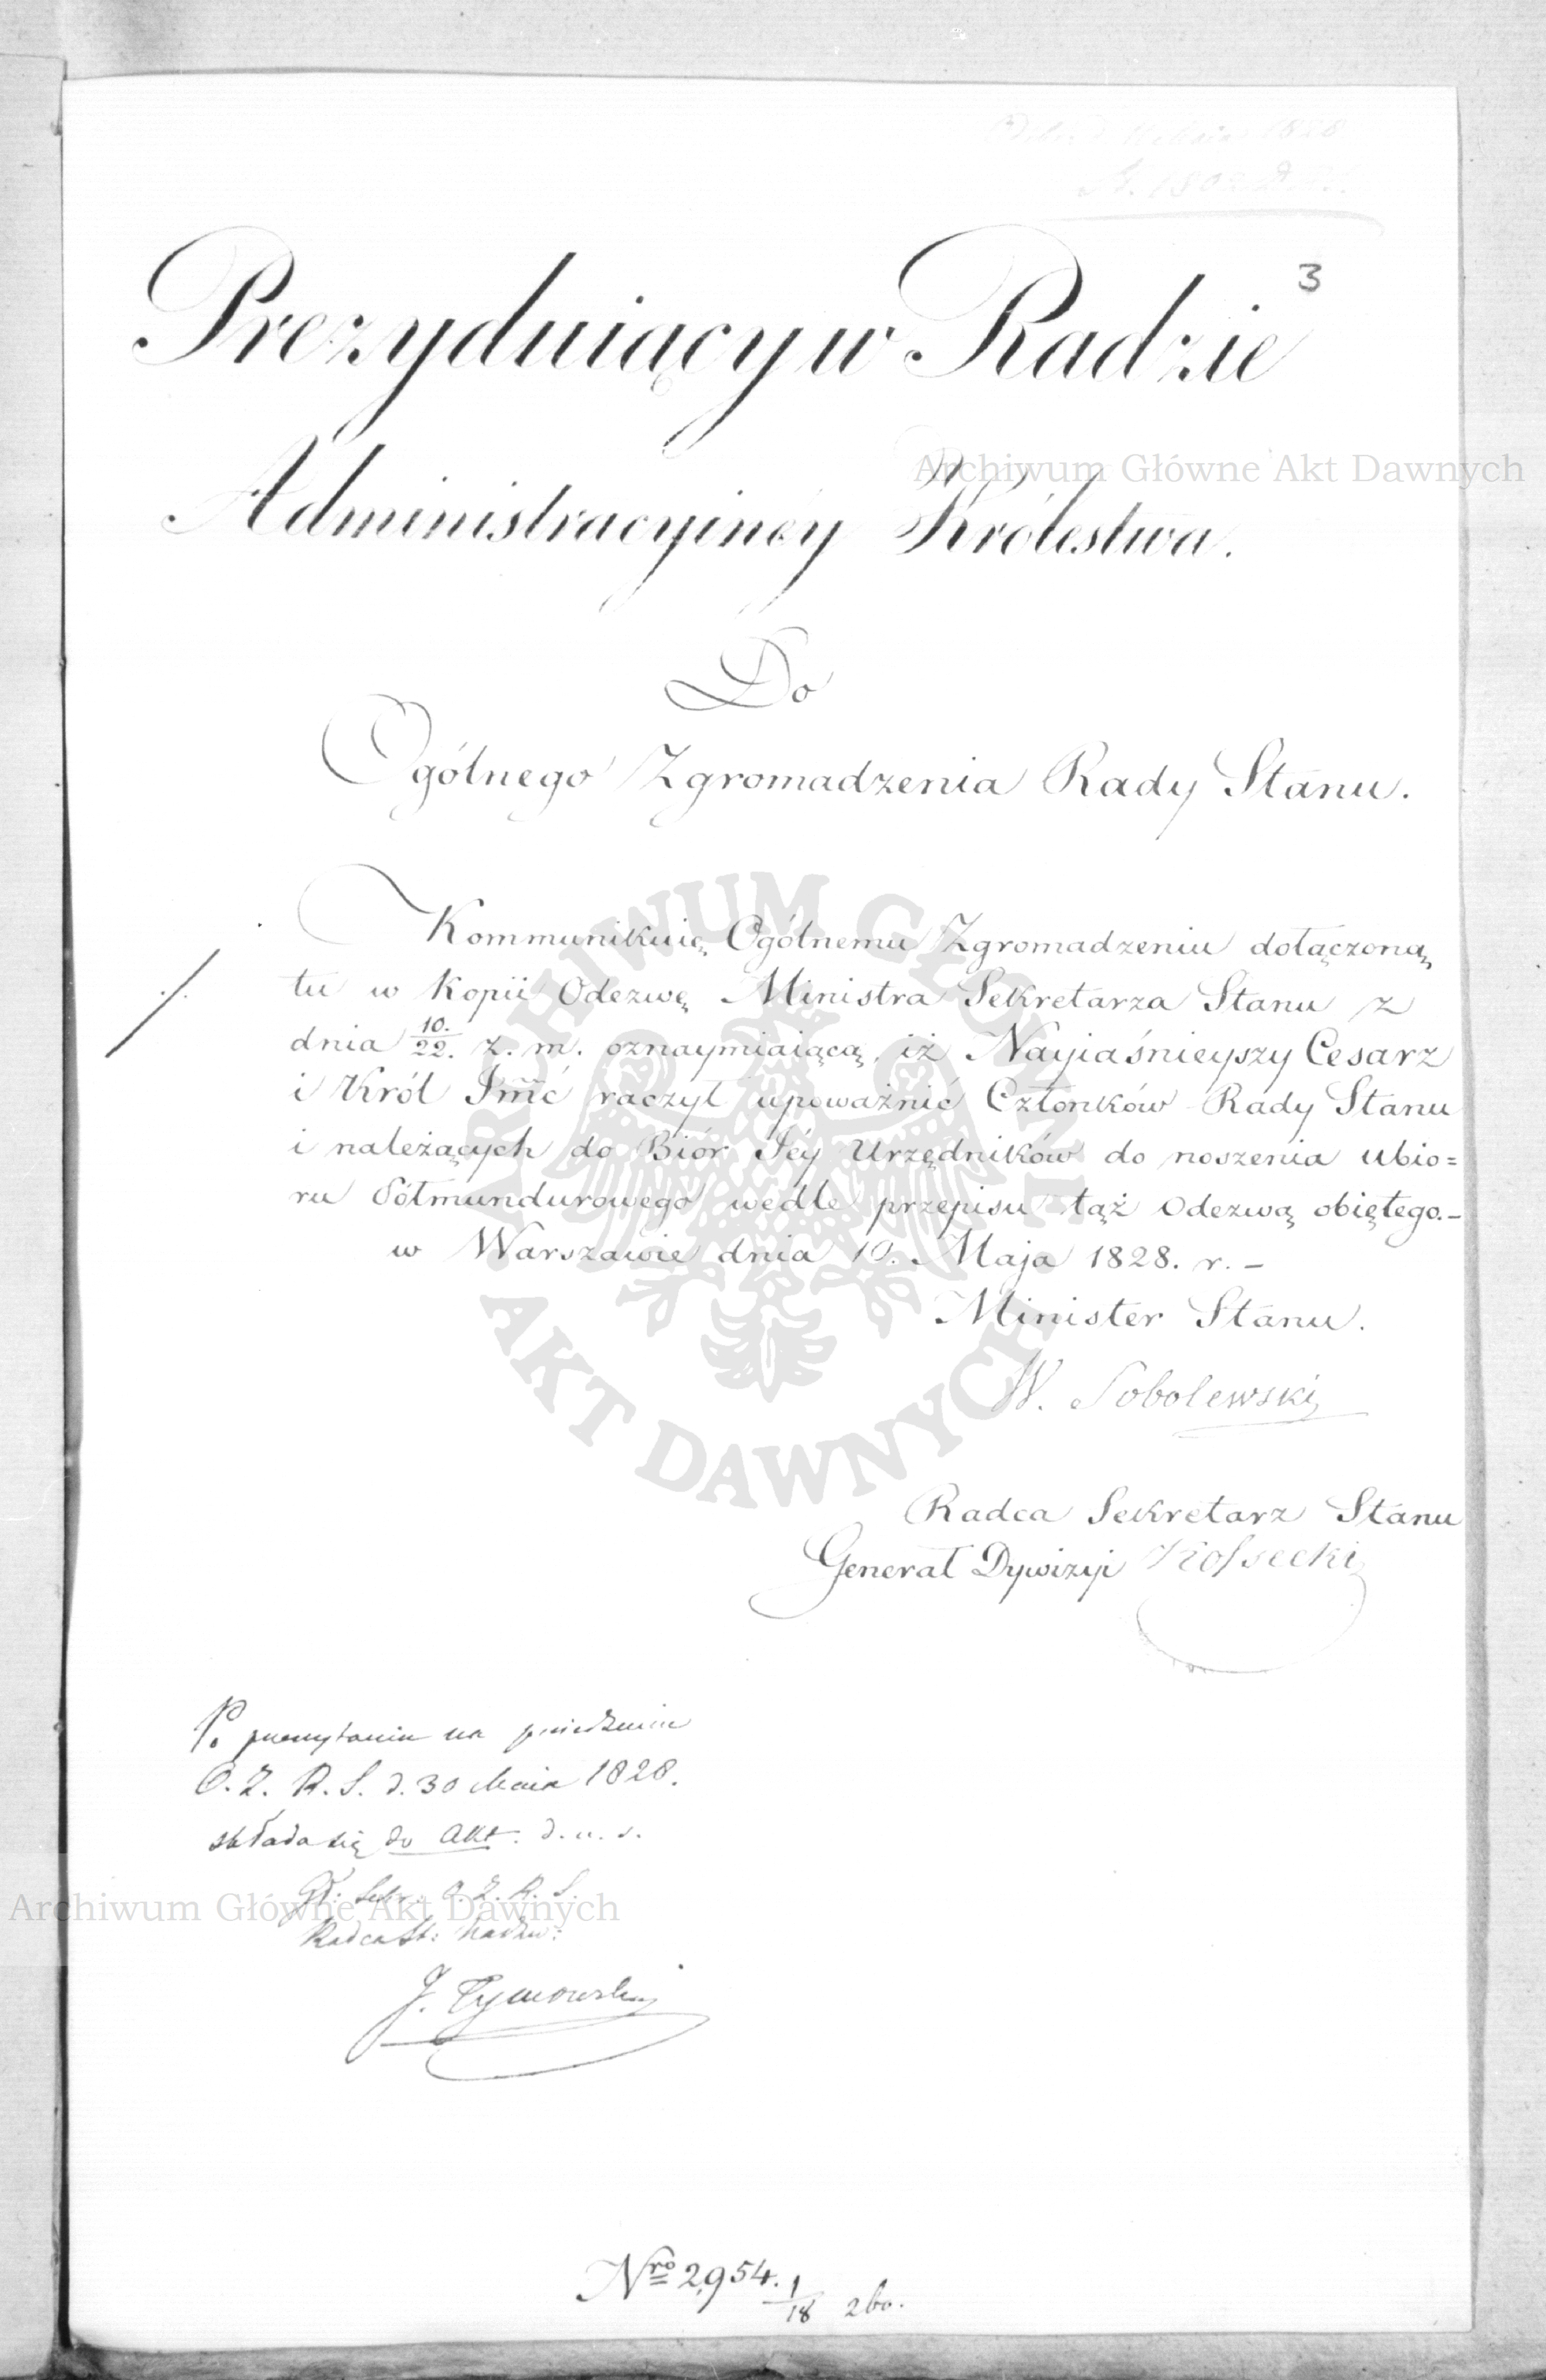 1828
3
Prezyduiący w Radzie
Administracyiney Królestwa.
Archiwum Główne Akt Dawnych
Do
Ogólnego Zgromadzenia Rady Stanu.
Kommunikuię Ogólnemu Zgromadzeniu dołączoną
tu w Kopii Odezwę Ministra Sekretarza Stanu z
dnia 10./22. z. m. oznaymiaiącą, iż Nayiaśnieyszy Cesarz
i Król Jmć raczył upoważnić Członków Rady Stanu
i należących do Biór Jéy Urzędników do noszenia ubio=
ru Półmundurowego wedle przepisu tąż Odezwą obiętego.–
w Warszawie dnia 10. Maja 1828. r. –
Minister Stanu.
W. Sobolewski
Radca Sekretarz Stanu
Generał Dywizyi Kossecki
ARCHIWUM GŁÓWNE AKT DAWNYCH
P. przeczytaniu na posiedzeniu
O. Z. R. S. d. 30 Maia 1828.
składa się do Akt. d. u. s.
Gł: Sekr: O. Z. R. S.
Archiwum Główne Akt Dawnych
Radca St: Nadzw:
J. Tymowski
Nro 2,954. 1/18 2bo.